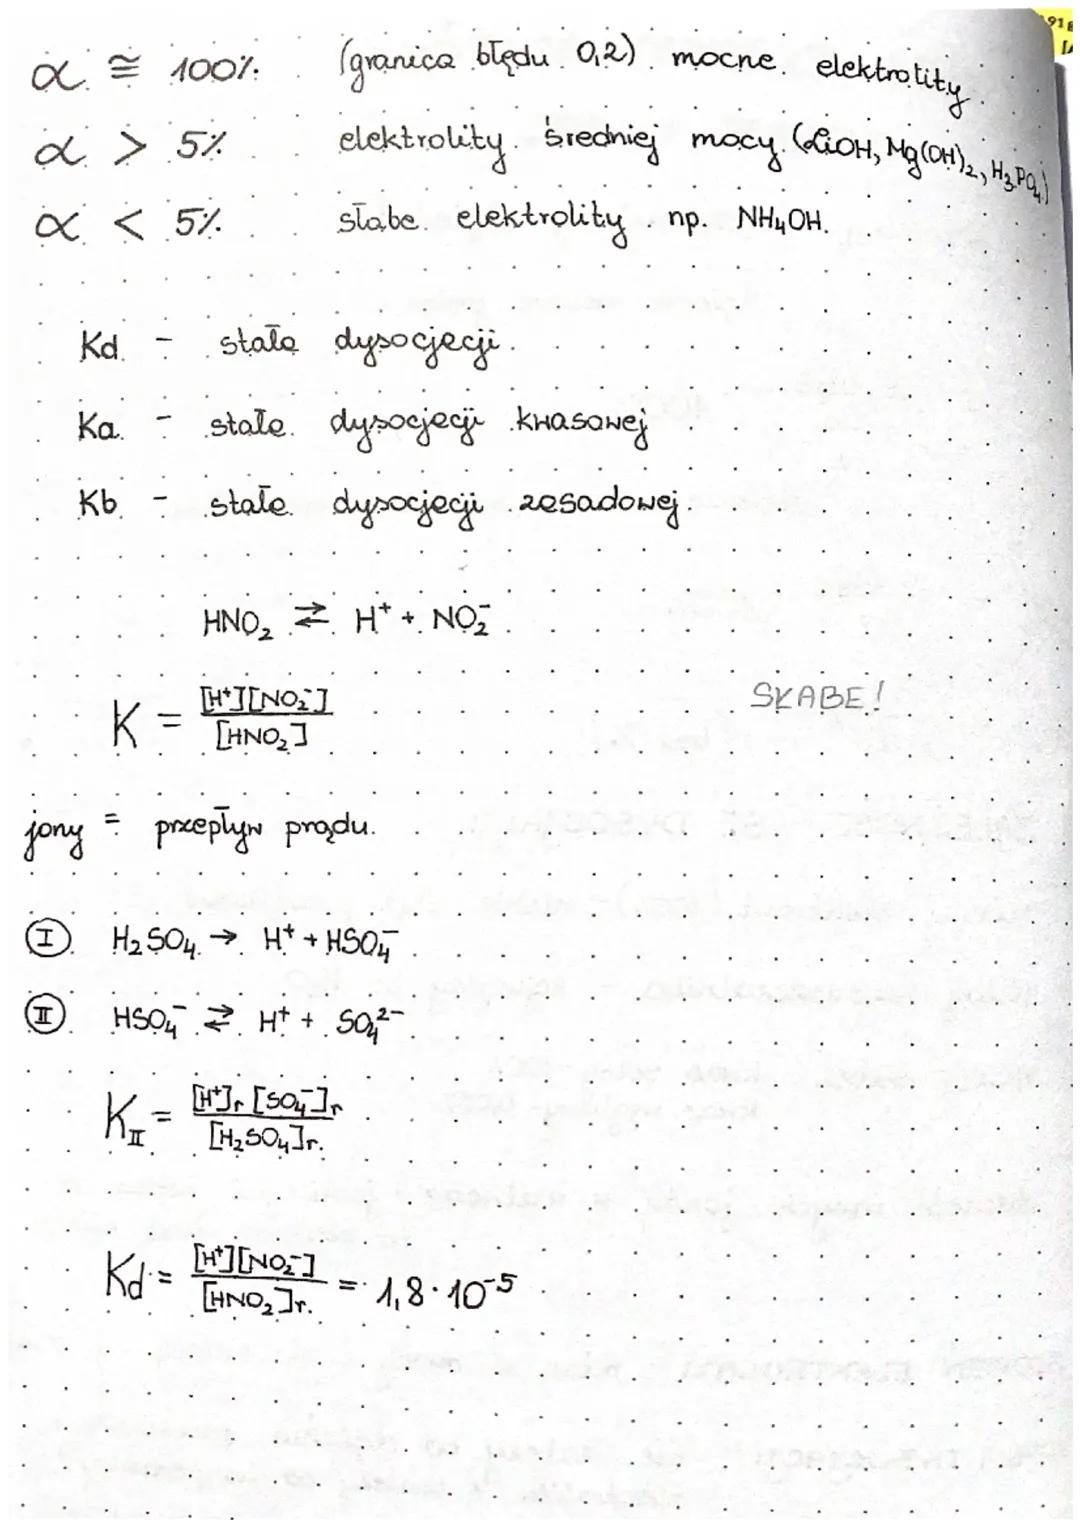 α ≅ 100% (granica błędu 0,2) mocne elektrolity
α > 5% elektrolity średniej mocy (LiOH, Mg(OH)₂, H₃PO₄)
α < 5% słabe elektrolity np. NH₄OH
Kd - stała dysocjacji
Ka - stała dysocjacji kwasowej
Kb - stała dysocjacji zasadowej
HNO₂ ⇄ H⁺ + NO₂⁻
K = [H⁺][NO₂⁻] / [HNO₂]
SŁABE!
jony = przepływ prądu
I H₂SO₄ → H⁺ + HSO₄⁻
II HSO₄⁻ ⇄ H⁺ + SO₄²⁻
K_II = [H⁺]r [SO₄⁻]r / [H₂SO₄]r
Kd = [H⁺][NO₂⁻] / [HNO₂]r = 1,8·10⁻⁵